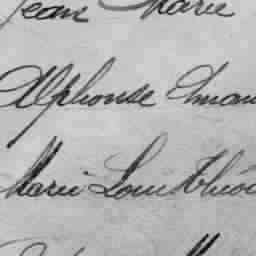 Jean Marie
Alphonse Aman
Marie Louis Théo